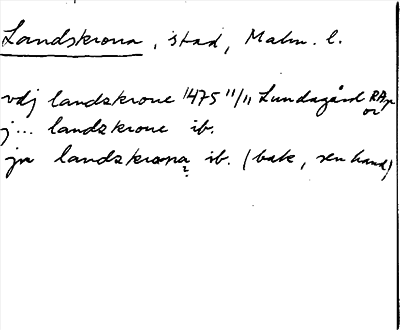 Landskrona, stad, Malm. l.
vdj landzkrone 1475 11/11 Lundagård RAp
or
j... landzkrone ib.
jn landzkrona ib. (bak, sen hand)
?